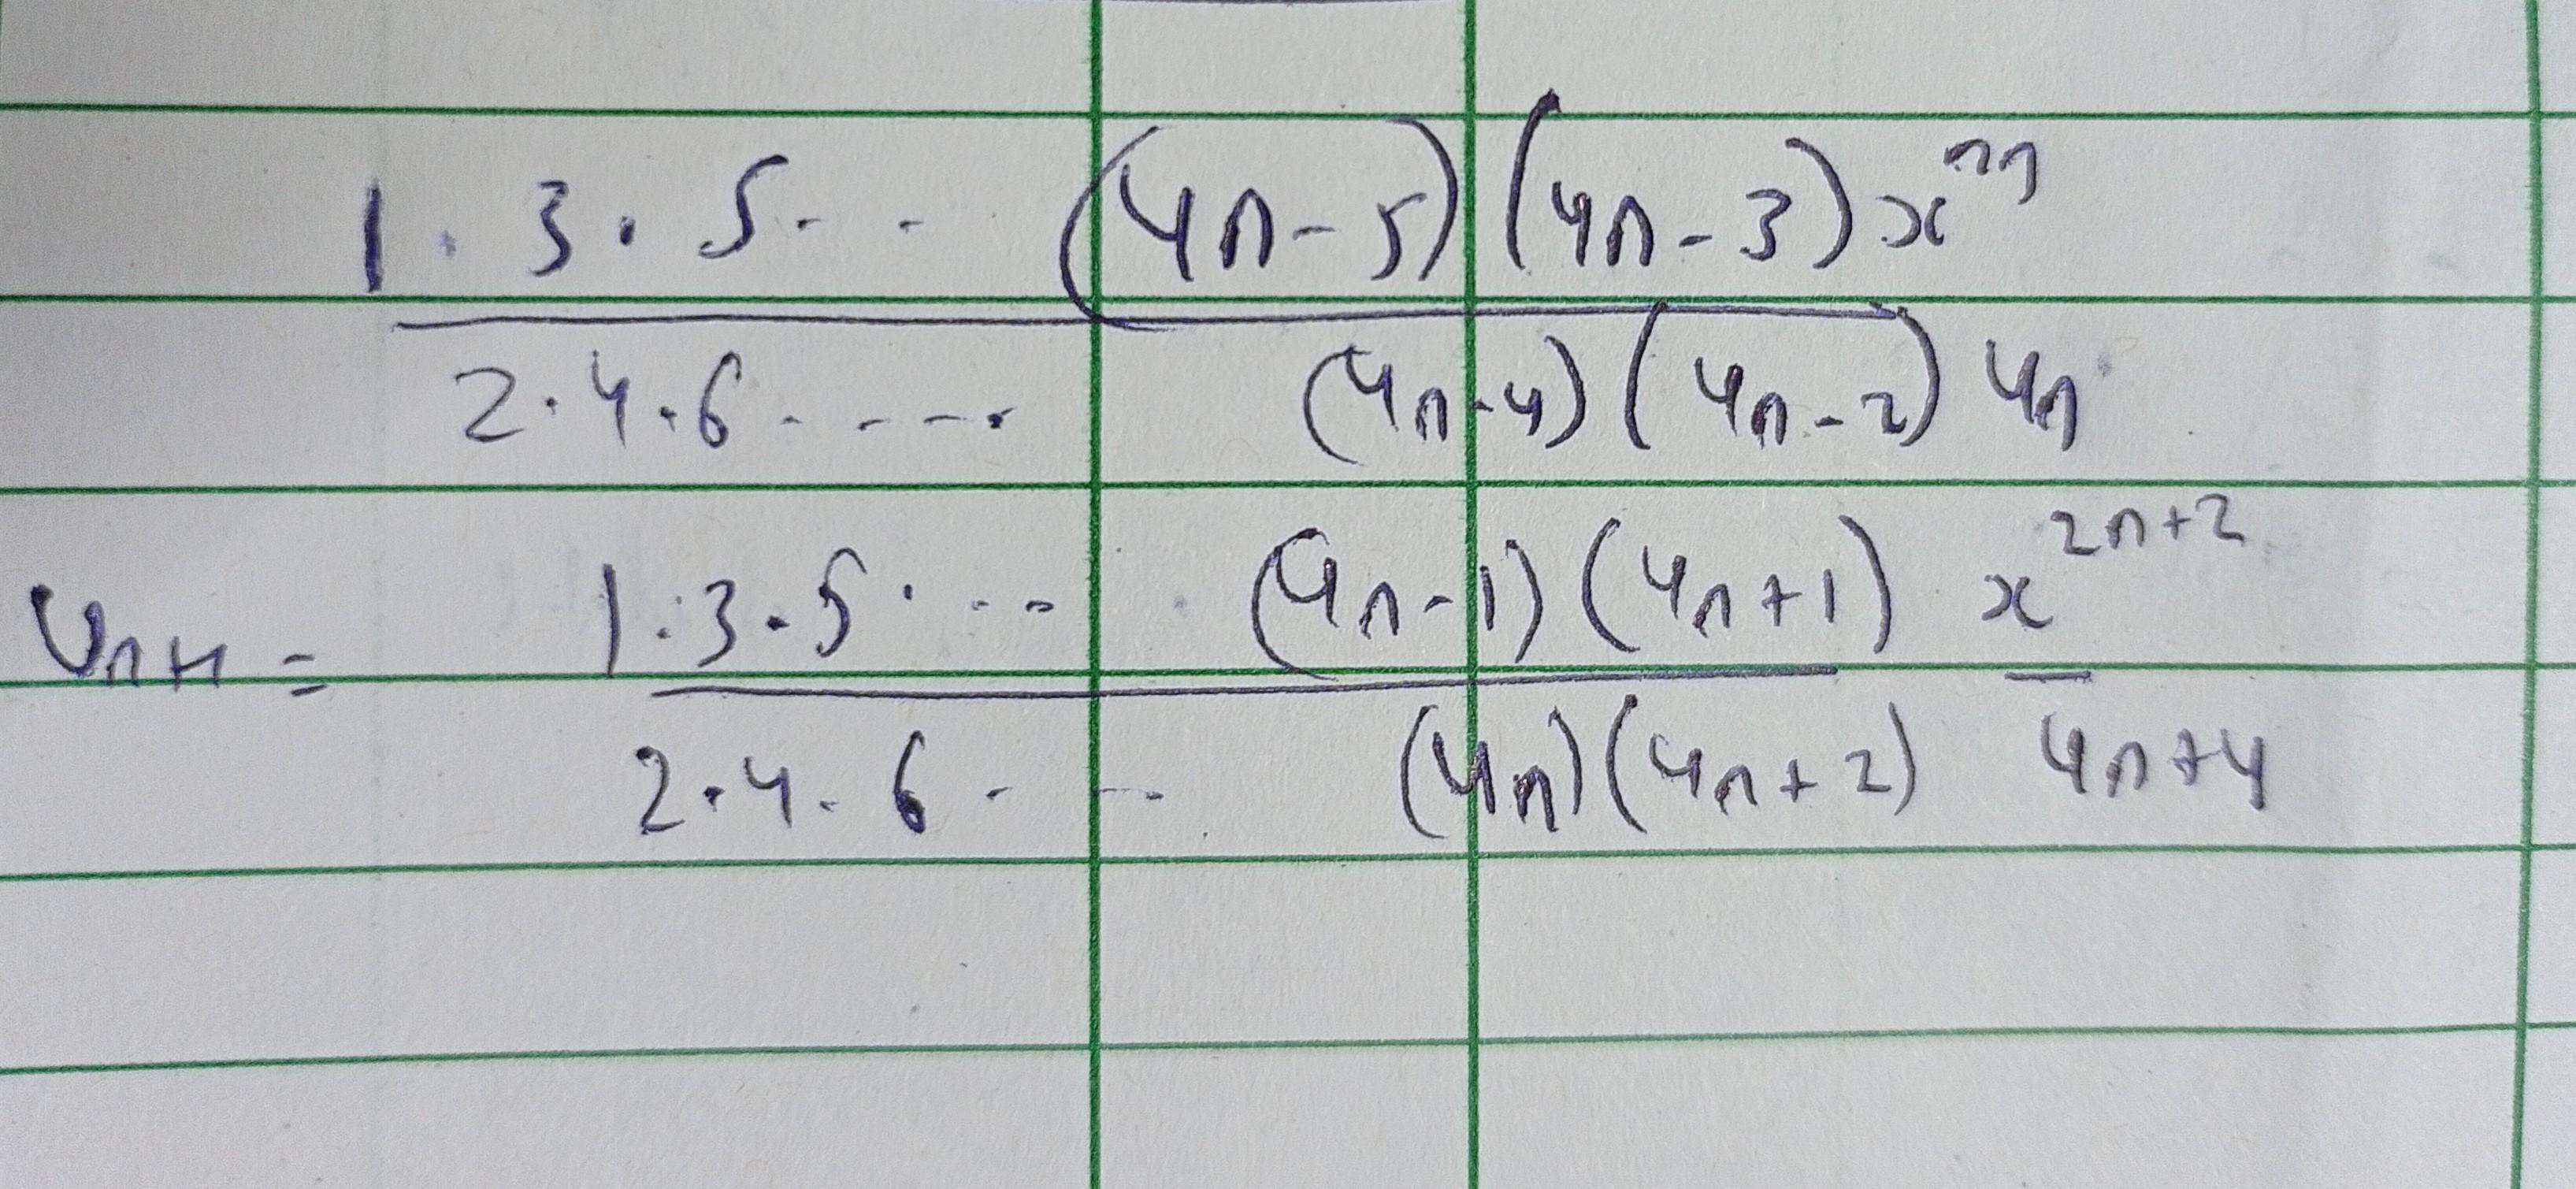 1 . 3 . 5 - - (4n-5) (4n-3) x^2n
2 . 4 . 6 - - - - - (4n-4) (4n-2) 4n
Un+1 = 1 . 3 . 5 . - - - (4n-1) (4n+1) x^2n+2
2 . 4 . 6 - - - (4n) (4n+2) 4n+4